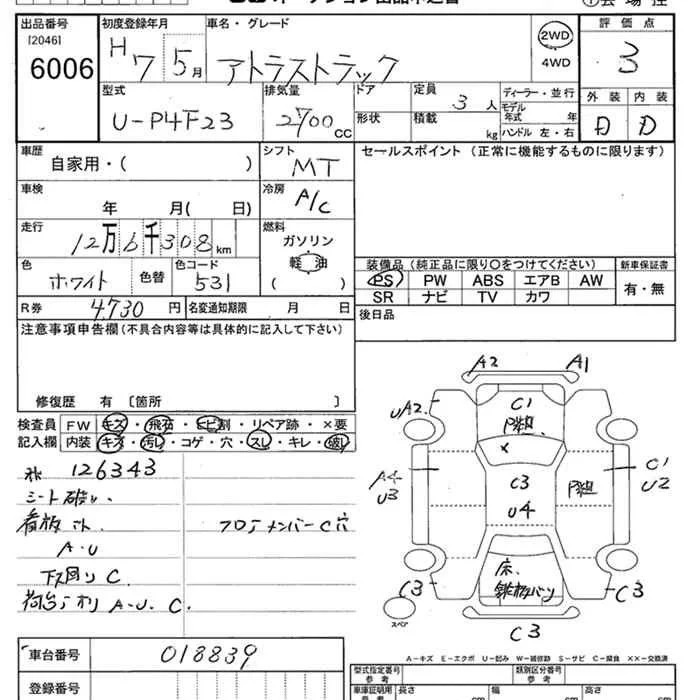 出品番号
[2046]
6006
初度登録年月
H 7 5月
車名・グレード
アトラストラック
2WD
4WD
評価点
3
型式
U-P4F23
排気量
2700cc
ドア
形状
定員
3人
積載
kg
ディーラー・並行
モデル年式 年
ハンドル 左・右
外装 内装
D D
車歴
自家用・( )
シフト
MT
セールスポイント(正常に機能するものに限ります)
車検
年 月( 日)
冷房
A/C
走行
12万6千308km
燃料
ガソリン
軽油
( )
色
ホワイト
色替
色コード
531
装備品(純正品に限り○をつけてください)
新車保証書
PS PW ABS エアB AW
SR ナビ TV カワ
有・無
R券 4,730円
名変通知期限 月 日
後日品
注意事項申告欄(不具合内容等は具体的に記入して下さい)
修復歴 有〔箇所 〕
検査員記入欄
FW キズ・飛石・ヒビ割・リペア跡・×要
内装 キズ・汚れ・コゲ・穴・スレ・キレ・破レ
126343
シート破レ、
看板
A・U
フロントメンバーC穴
下回りC
荷台アオリ A・U、C、
A2 A1
UA2
C1
凹
×
C3
U4
A4
U3
C1
U2
床、
鉄板
C3 C3
C3
スペア
車台番号
018839
登録番号
A−キズ E−エクボ U−凹み W−補修跡 S−サビ C−腐食 ××−交換済
型式指定番号
参考
類別区分番号
参考
車庫証明用
参考
長さ cm
幅 cm
高さ cm